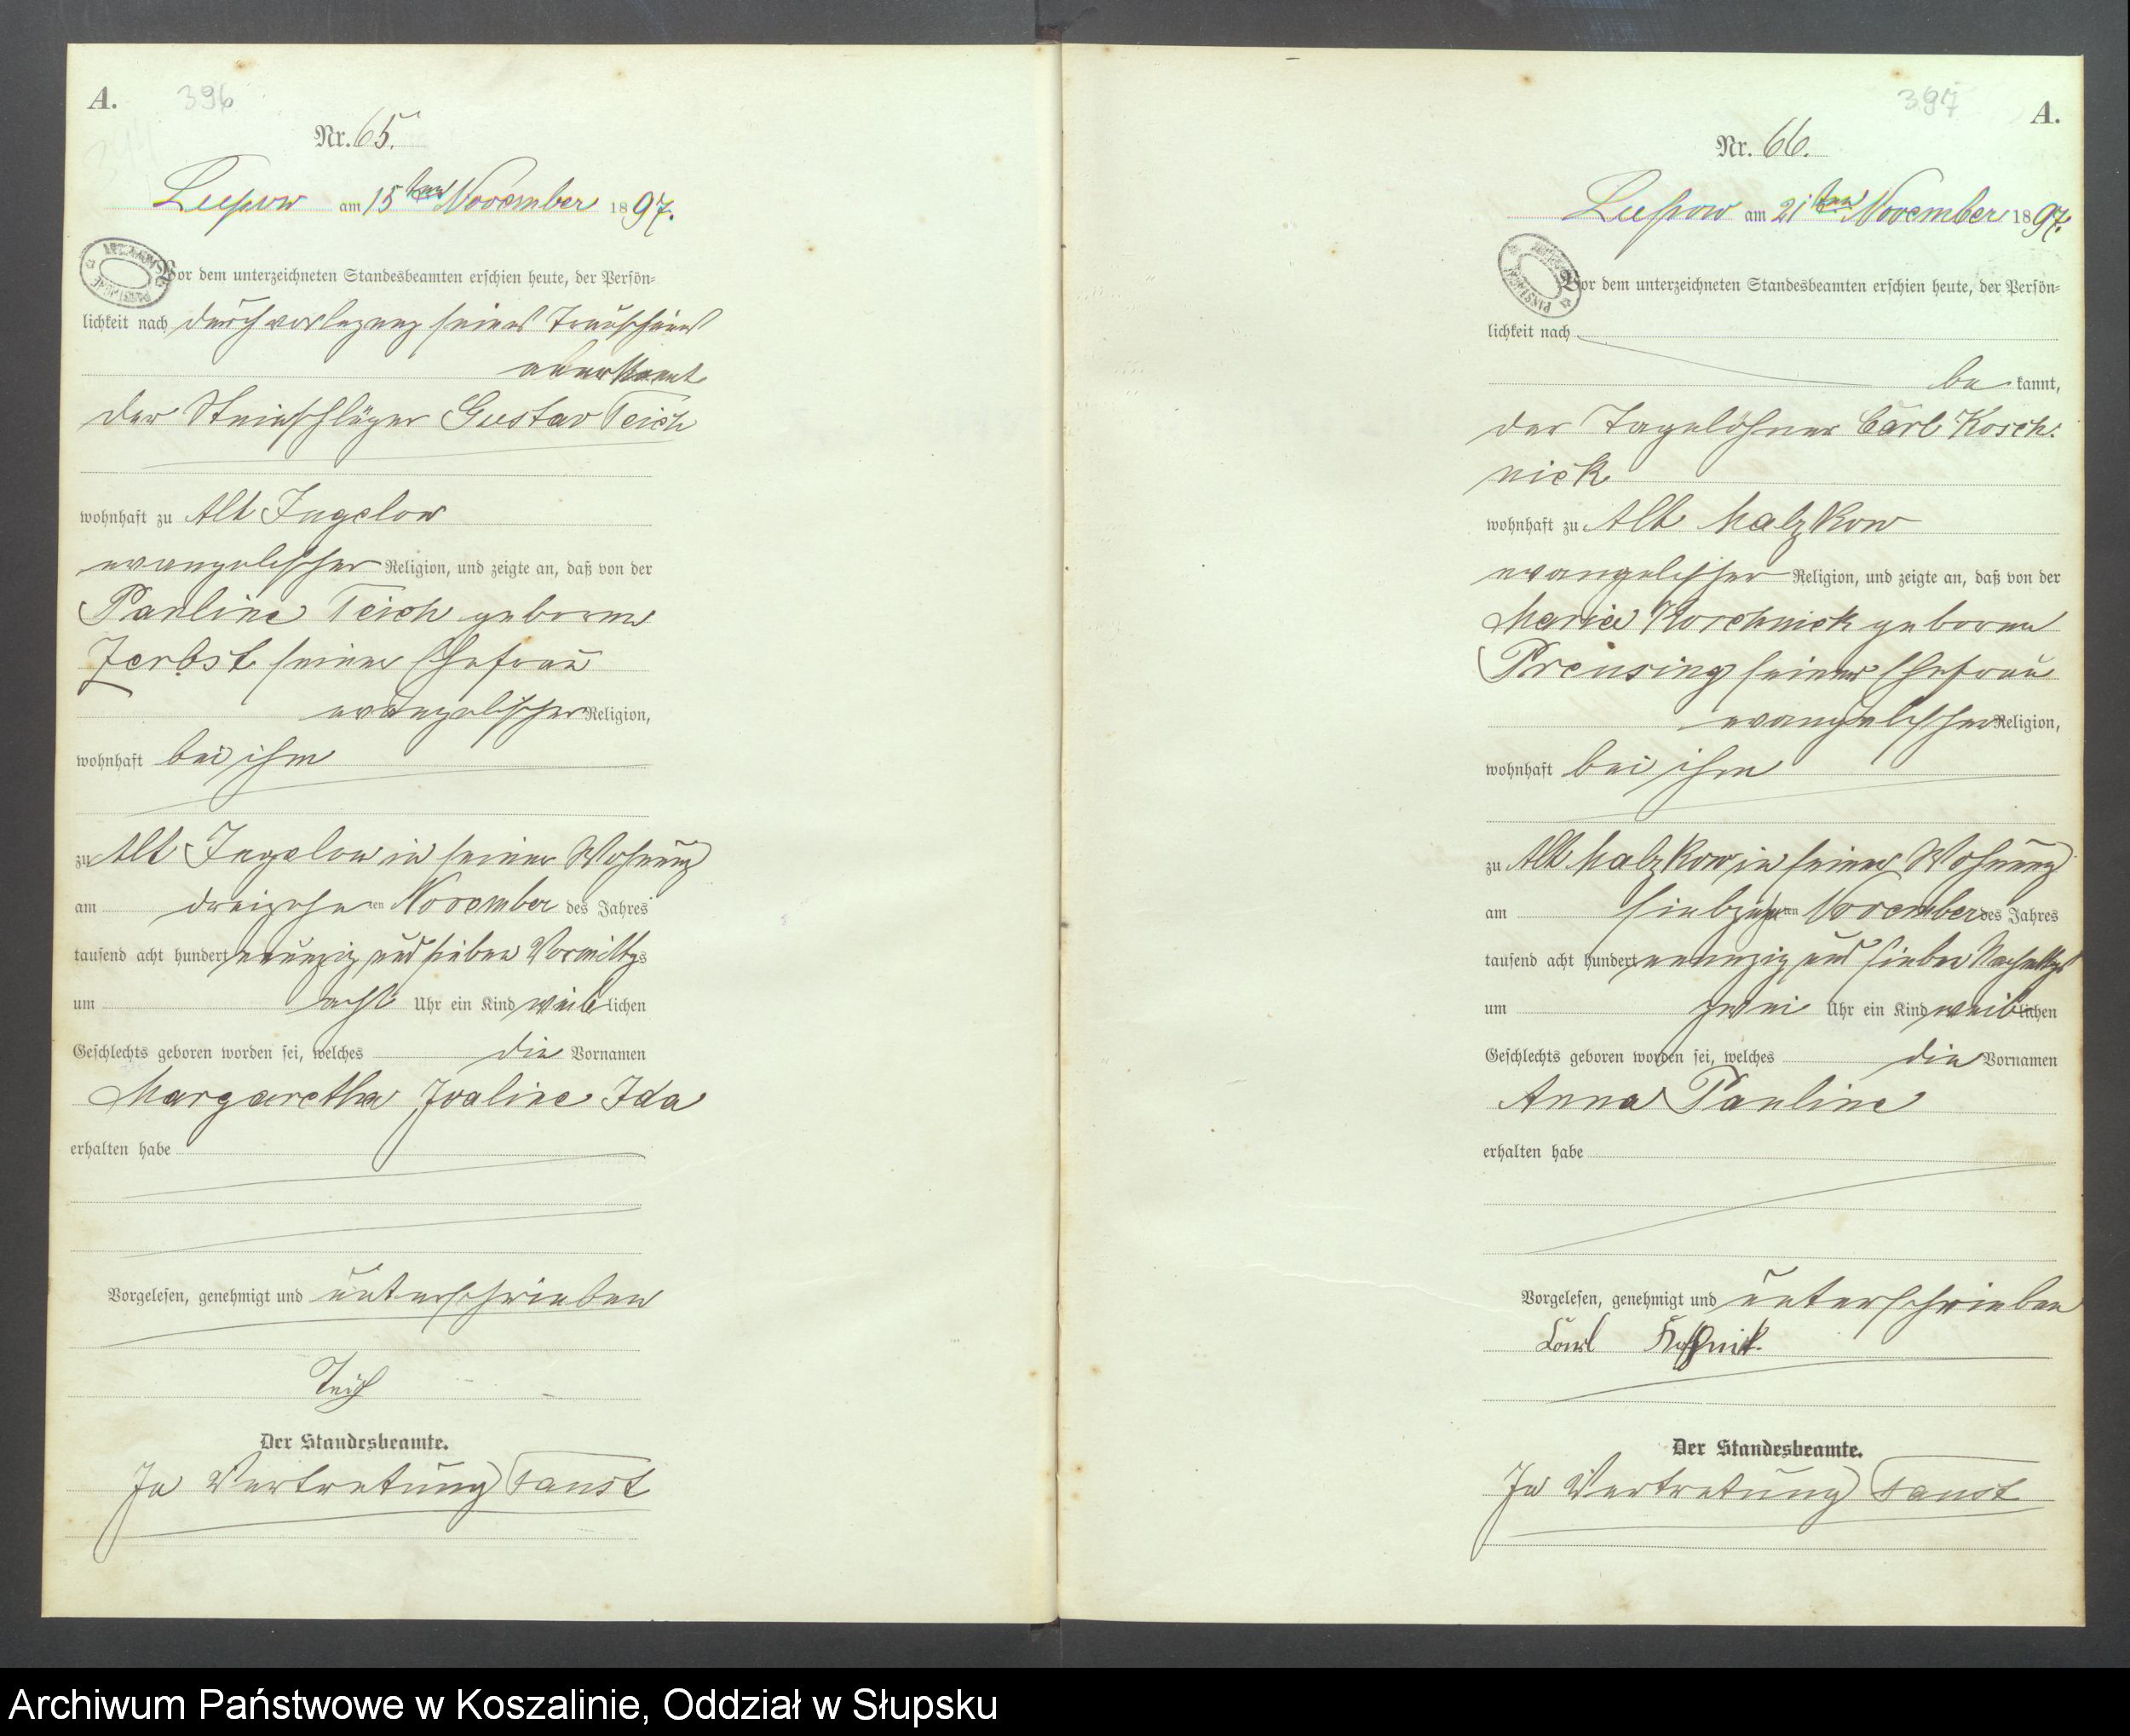 A.
396
Nr. 65.
Lupow am 15ten November 1897.
Vor dem unterzeichneten Standesbeamten erschien heute, der Persön-
lichkeit nach durch vorlegung seines Trauscheins
anerkannt
der Steinschläger Gustav Teich
wohnhaft zu Alt Jugelow
evangelischer Religion, und zeigte an, daß von der
Pauline Teich geborne
Zerbst seiner Ehefrau
evangelischer Religion,
wohnhaft bei ihm
zu Alt Jugelow in seiner Wohnung
am dreizehnten November des Jahres
tausend acht hundert neunzig und sieben Vormittgs
um acht Uhr ein Kind weiblichen
Geschlechts geboren worden sei, welches die Vornamen
Margaretha Ida
erhalten habe
Vorgelesen, genehmigt und unterschrieben
Teich
Der Standesbeamte.
In Vertretung Faust
397
A.
Nr. 66.
Lupow am 21ten November 1897.
Vor dem unterzeichneten Standesbeamten erschien heute, der Persön-
lichkeit nach
be kannt,
der Tagelöhner Carl Kosch-
nick
wohnhaft zu Alt Malzkow
evangelischer Religion, und zeigte an, daß von der
Maria Koschnick geborne
Preusing seiner Ehefrau
evangelischer Religion,
wohnhaft bei ihm
zu Alt Malzkow in seiner Wohnung
am siebzehnten November des Jahres
tausend acht hundert neunzig und sieben Nachmittgs
um zwei Uhr ein Kind weiblichen
Geschlechts geboren worden sei, welches die Vornamen
Anna Pauline
erhalten habe
Vorgelesen, genehmigt und unterschrieben
Carl Koschnick.
Der Standesbeamte.
In Vertretung Faust
Archiwum Państwowe w Koszalinie, Oddział w Słupsku